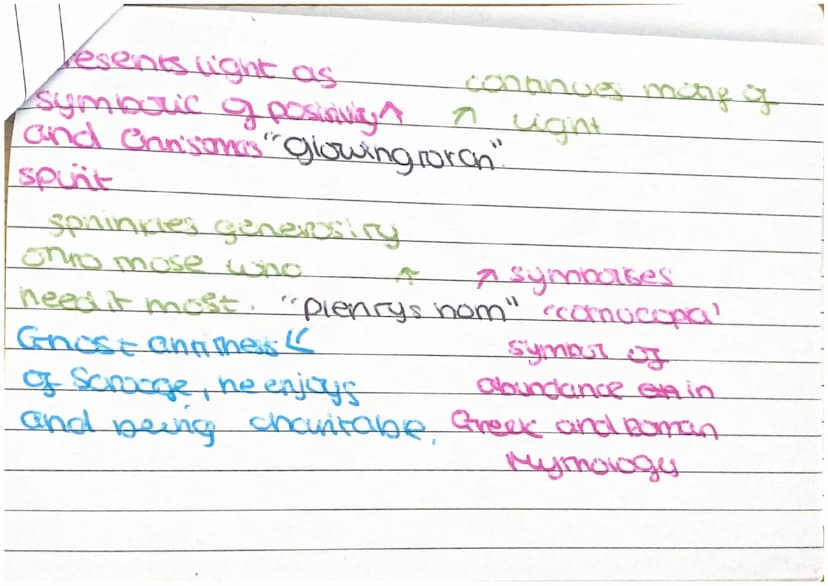 esents light as
symbolic of positivity
and Christmas "glowing torch"
spirit
continues motif of
light
sprinkles generosity
onto those who
need it most. "plentys horn" 'cornucopa'
symbolises
symbol of
abundance in
Greek and Roman
Mythology
Ghost antithesis
of Scrooge, he enjoys
and being charitable.